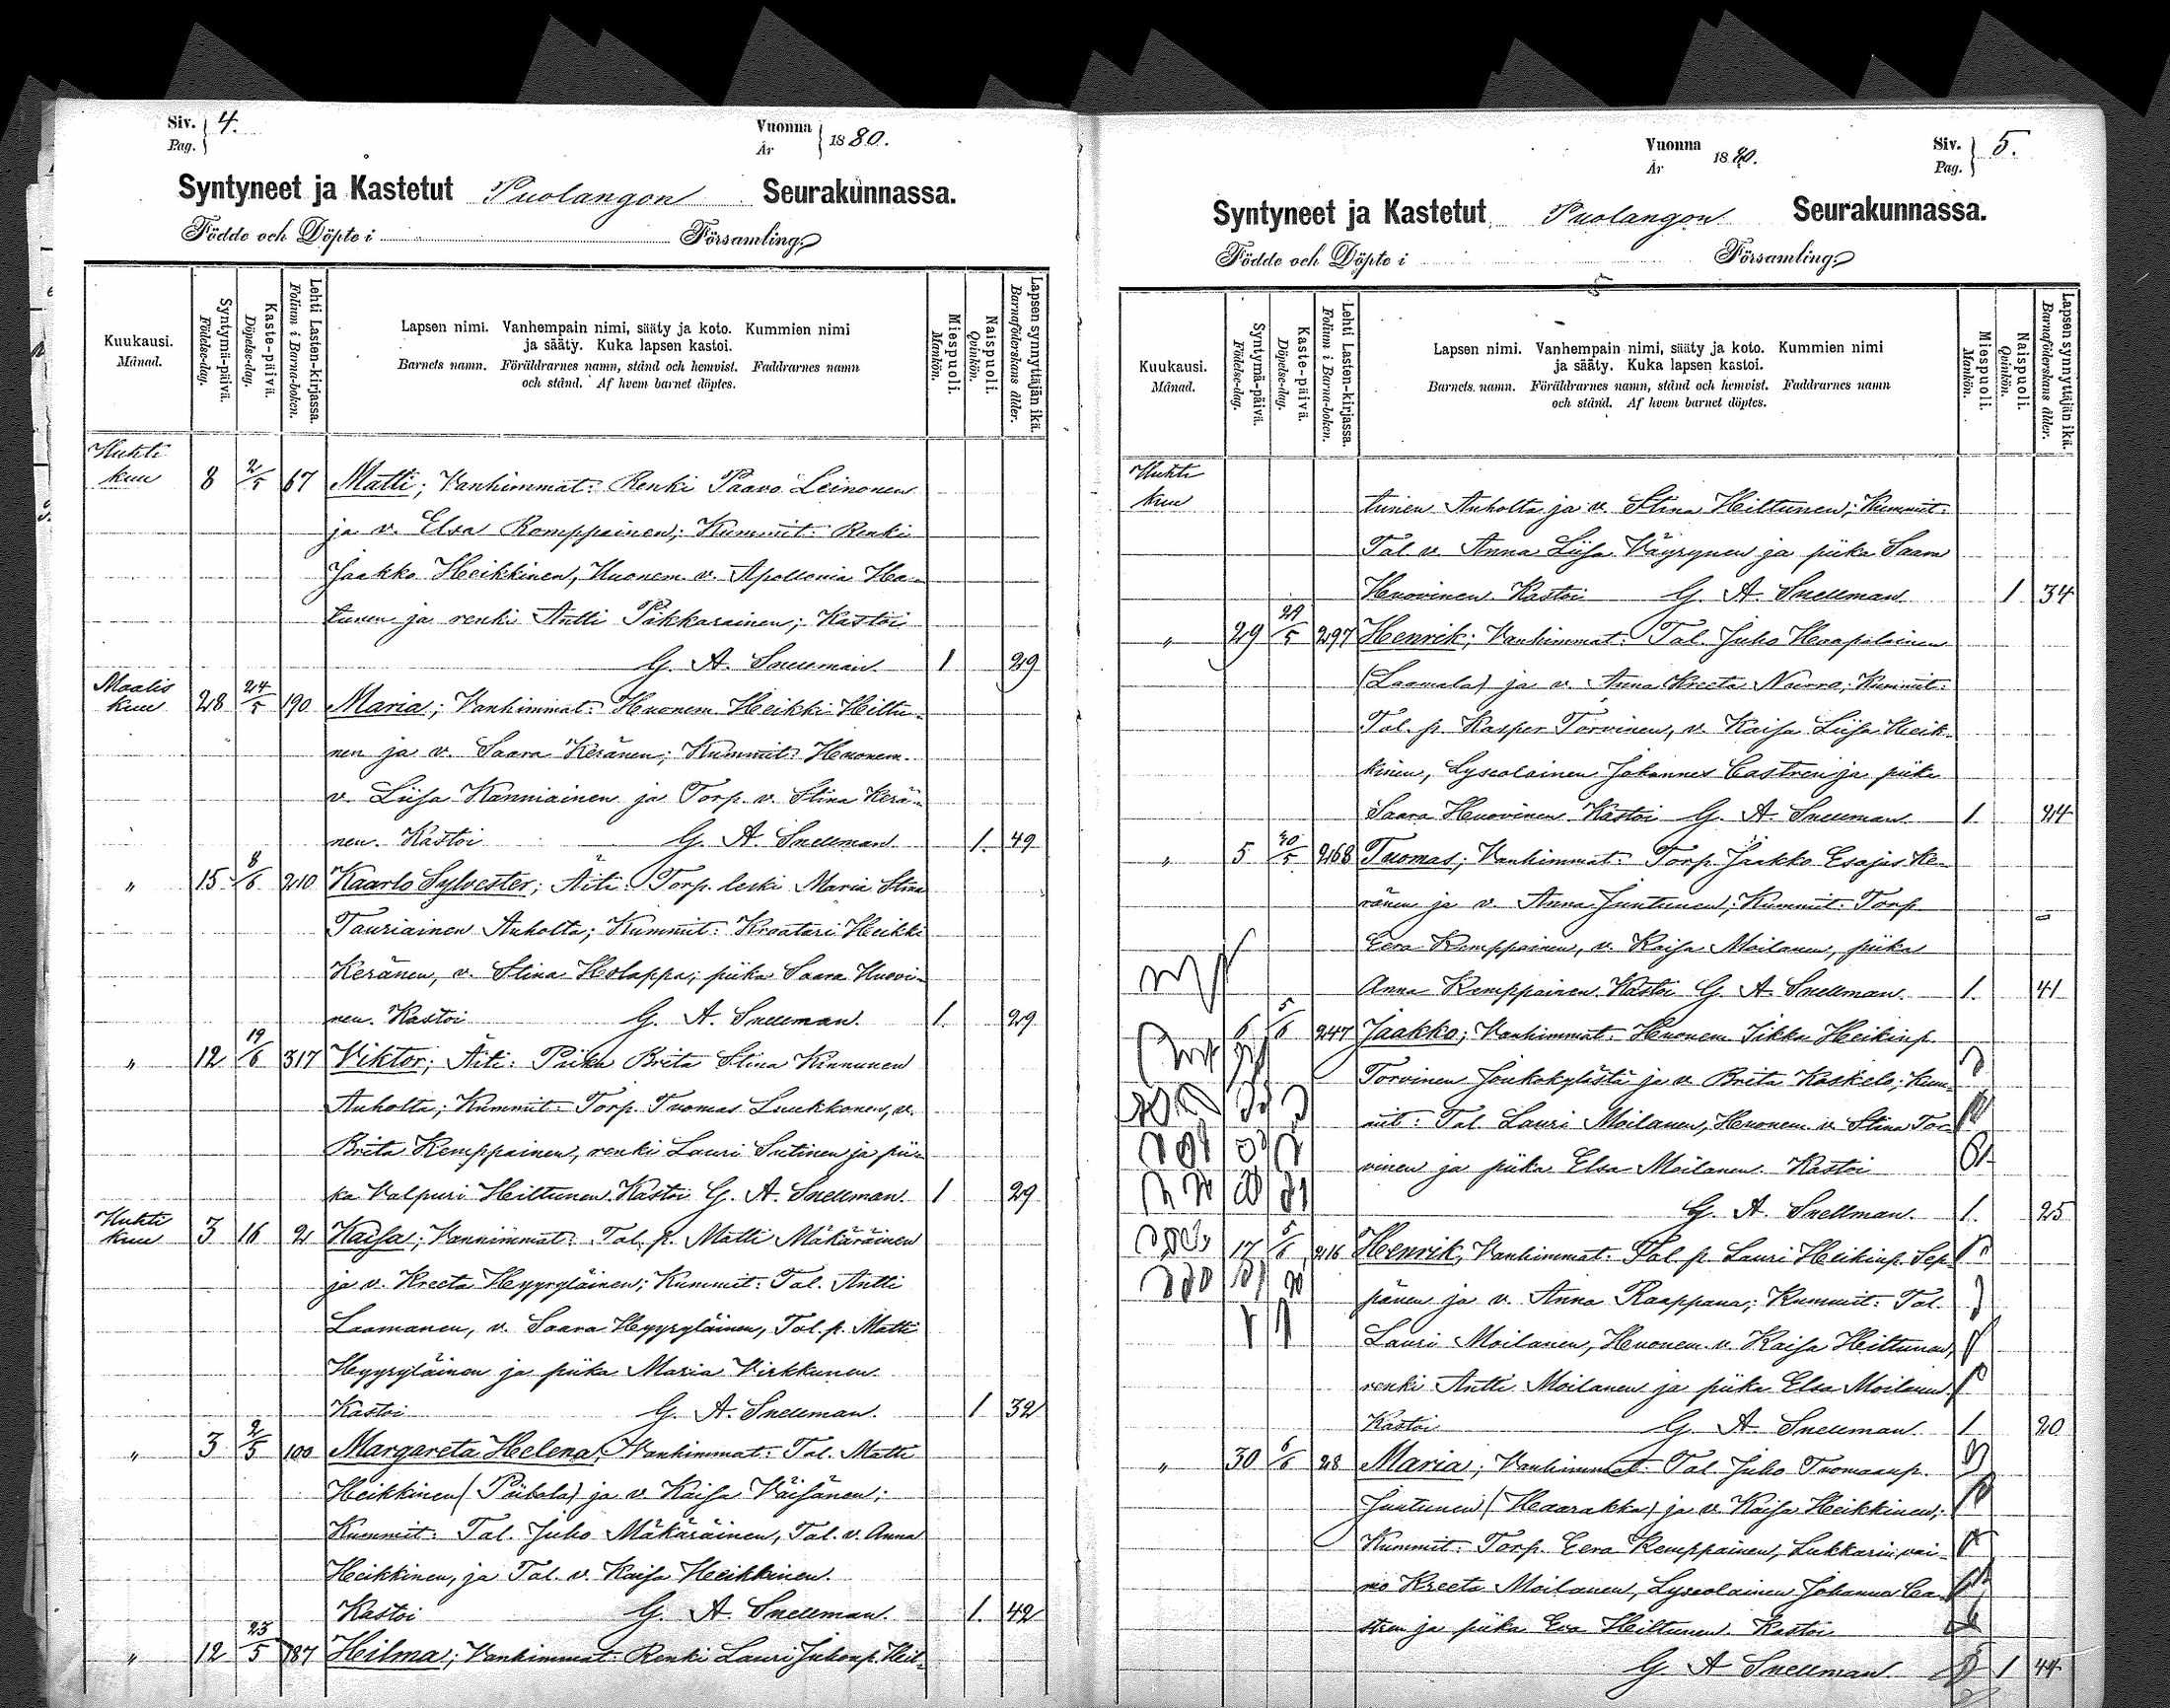 Siv. 4.
Pag.
Vuonna 1880.
År
Syntyneet ja Kastetut Puolangon Seurakunnassa.
Födde och Döpte i Församling.
Kuukausi.
Månad.
Syntymä-päivä.
Födelse-dag.
Kaste-päivä.
Döpelse-dag.
Lehti Lasten-kirjassa.
Folium i Barna-boken.
Lapsen nimi. Vanhempain nimi, sääty ja koto. Kummien nimi
ja sääty. Kuka lapsen kastoi.
Barnets namn. Föräldrarnes namn, stånd och hemvist. Faddrarnes namn
och stånd. Af hvem barnet döptes.
Miespuoli.
Mankön.
Naispuoli.
Qvinkön.
Lapsen synnyttäjän ikä.
Barnaföderskans ålder.
Huhti
kuu 8 2/5 67 Matti; Vanhimmat: Renki Paavo Leinonen
ja v. Elsa Komppainen; Kummit: Renki
Jaakko Heikkinen, Huonem. v. Apollonia Ha-
tunen ja renki Antti Pikkarainen; Kastoi
G. A. Snellman. 1 29
Maalis
kuu 28 24/5 190 Maria; Vanhimmat: Huonem Heikki Hiltu-
nen ja v. Saara Keränen; Kummit: Huonem.
v. Liisa Kanniainen ja Torp. v. Stina Kerä-
nen. Kastoi G. A. Snellman. 1. 49
" 15 8/6 210 Kaarlo Sylvester; Äiti: Torp. leski Maria Stina
Tauriainen Auholta; Kummit: Kraatari Heikki
Keränen, v. Stina Holappa; piika Saara Huovi-
nen. Kastoi G. A. Snellman. 1. 29
" 12 19/6 317 Viktor; Äiti: Piika Brita Stina Kinnunen
Auholta; Kummit: Torp. Tuomas Luukkonen, v.
Brita Kemppainen, renki Lauri Sutinen ja pii-
ka Valpuri Hiltunen. Kastoi G. A. Snellman. 1 29
Huhti
kuu 3 16 2 Kaisa; Vannimmat: Tal. p. Matti Mäkäräinen
ja v. Kreeta Hyyryläinen; Kummit: Tal. Antti
Laamanen, v. Saara Hyyryläinen, Tal. p. Matti
Hyyryläinen ja piika Maria Virkkunen.
Kastoi G. A. Snellman. 1 32
" 3 2/5 100 Margareta Helena; Vanhimmat: Tal. Matti
Heikkinen (Piibola) ja v. Kaisa Väisänen;
Kummit: Tal. Juho Mäkäräinen, Tal. v. Anna
Heikkinen, ja Tal. v. Kaisa Heikkinen.
Kastoi G. A. Snellman. 1. 42
" 12 23/5 187 Heilma; Vanhimmat: Renki Lauri Juhonp. Hil-
Vuonna 1880.
År
Siv. 5.
Pag.
Syntyneet ja Kastetut Puolangon Seurakunnassa.
Födde och Döpte i Församling.
Kuukausi.
Månad.
Syntymä-päivä.
Födelse-dag.
Kaste-päivä.
Döpelse-dag.
Lehti Lasten-kirjassa.
Folium i Barna-boken.
Lapsen nimi. Vanhempain nimi, sääty ja koto. Kummien nimi
ja sääty. Kuka lapsen kastoi.
Barnets namn. Föräldrarnes namn, stånd och hemvist. Faddrarnes namn
och stånd. Af hvem barnet döptes.
Miespuoli.
Mankön.
Naispuoli.
Qvinkön.
Lapsen synnyttäjän ikä.
Barnaföderskans ålder.
Huhti
kuu tunen Auholta ja v. Stina Hiltunen; Kummit:
Tal v. Anna Liisa Väyrynen ja piika Saara
Huovinen. Kastoi G. A. Snellman. 1 34
" 29 29/5 297 Henrik; Vanhimmat: Tal. Juho Haapalainen
(Laamala) ja v. Anna Kreeta Nurro; Kummit:
Tal. p. Kasper Torvinen, v. Kaisa Liisa Heik-
kinen, Lyseolainen Johannes Castren ja piika
Saara Huovinen. Kastoi G. A. Snellman. 1. 24
" 5 268 Tuomas; Vanhimmat: Torp. Jaakko Esajas Ke-
ränen ja v. Anna Juntunen; Kummit: Torp
Eera Kemppainen, v. Kaisa Moilanen, piika
Anna Kemppainen. Kastoi G. A. Snellman. 1. 41
6 5/6 247 Jaakko; Vanhimmat: Huonem Iikka Heikinp.
Torvinen Joukokylästä ja v. Brita Kaskelo; Kum-
mit: Tal. Lauri Moilanen, Huonem. v. Stina Tor-
vinen ja piika Elsa Moilanen. Kastoi
G. A. Snellman. 1. 25
17 5/6 216 Henrik, Vanhimmat: Tal. p. Lauri Heikinp. Sep-
pänen ja v. Anna Raappana; Kummit: Tal.
Lauri Moilanen, Huonem. v. Kaisa Hiltunen,
renki Antti Moilanen ja piika Elsa Moilanen.
Kastoi G. A. Snellman. 1. 20
" 30 6/6 28 Maria; Vanhimmat: Tal. Juho Tuomaanp.
Juntunen (Haarakka) ja v. Kaisa Heikkinen;
Kummit: Torp. Eera Kemppainen, Lukkarin vai-
mo Kreeta Moilanen, Lyseolainen Johannes Ca-
stren ja piika Eva Hiltunen. Kastoi
G. A Snellman. 1 44